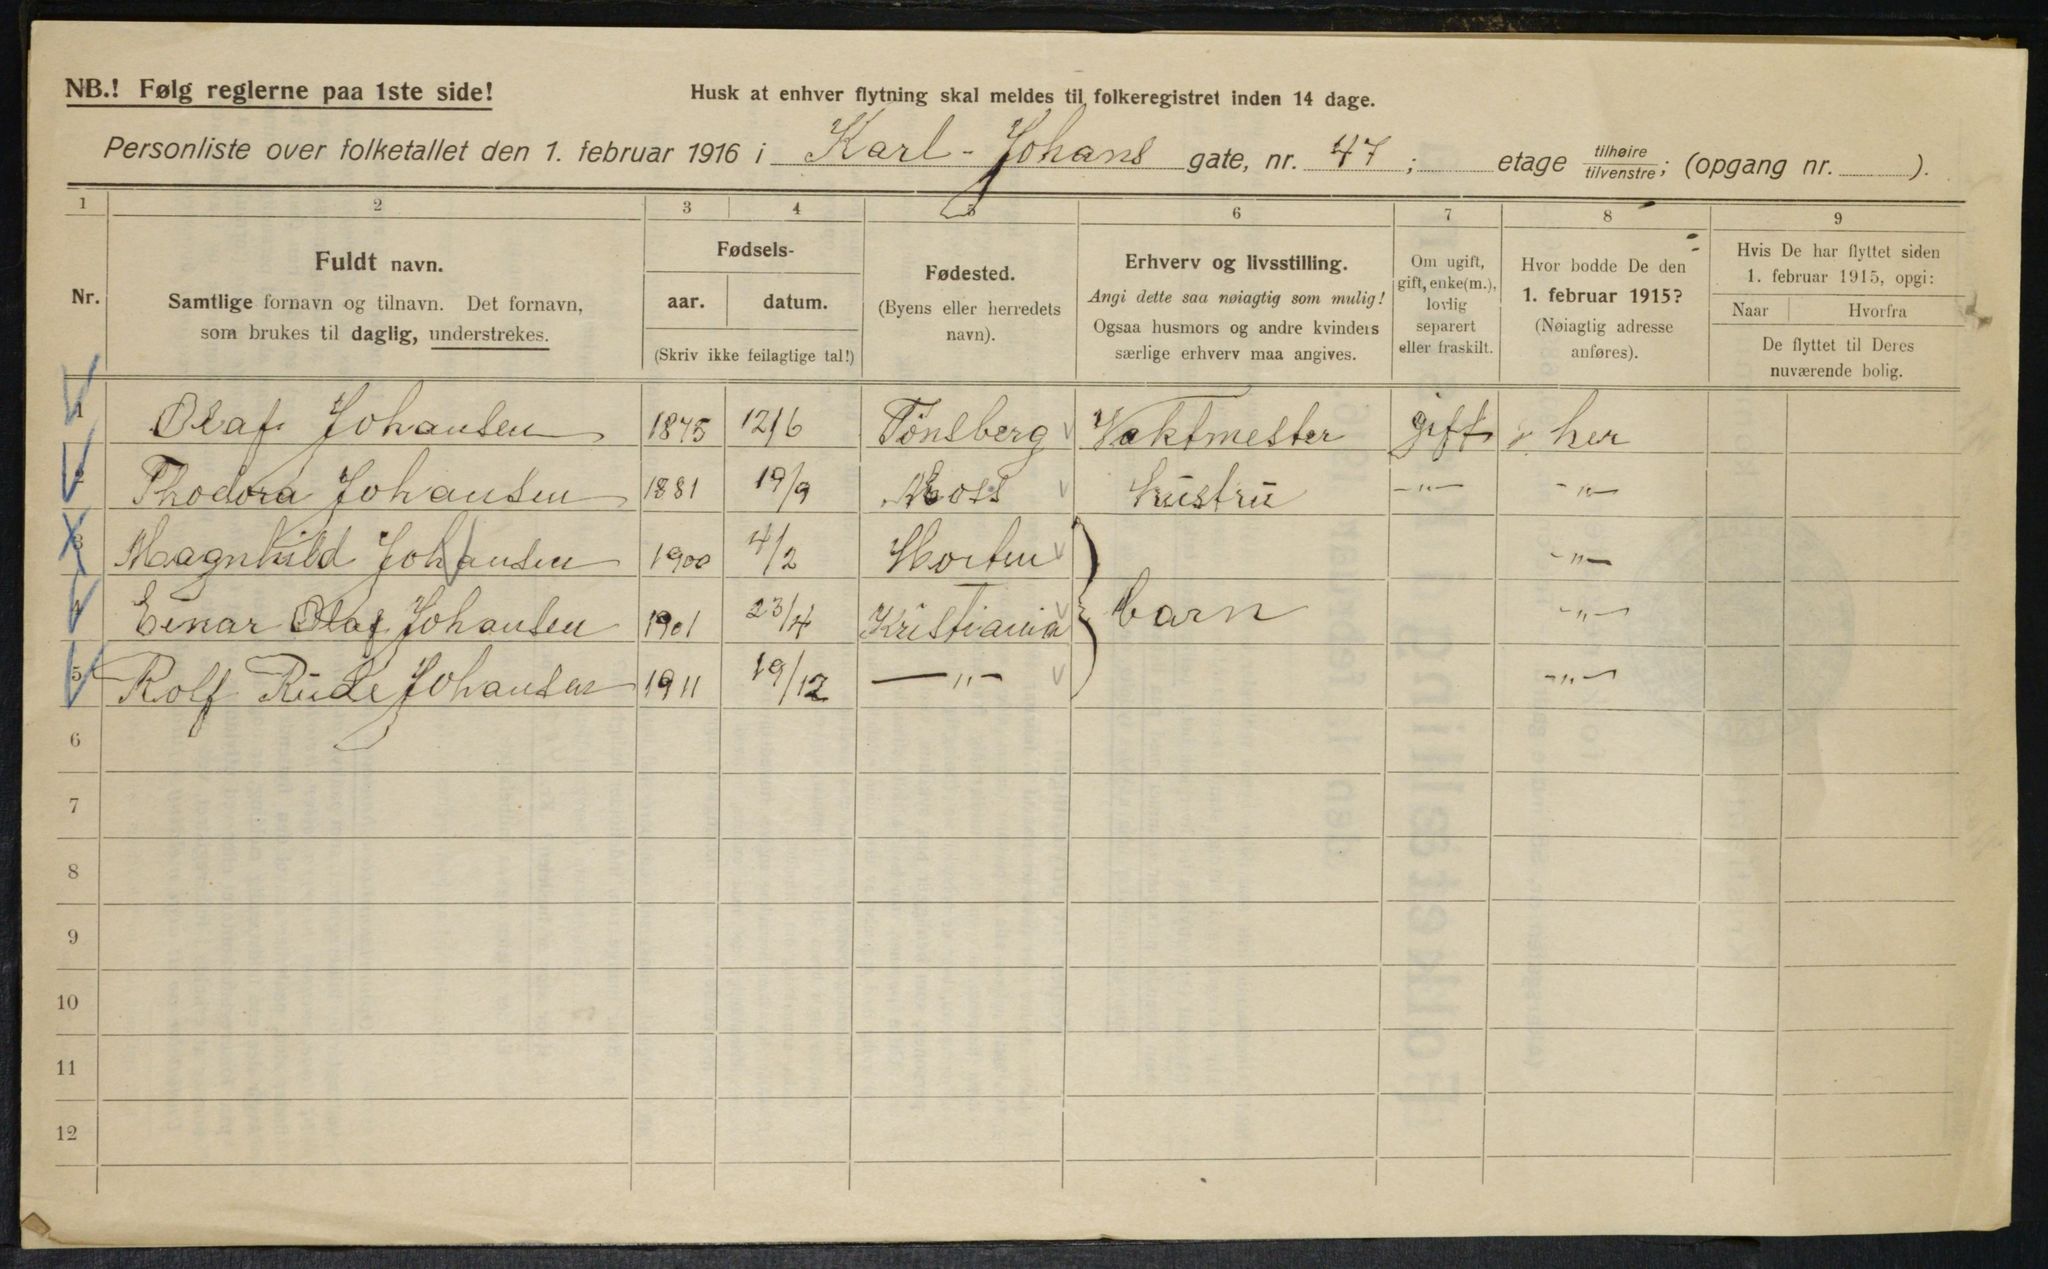 NB.! Følg reglerne paa 1ste side!
Husk at enhver flytning skal meldes til folkeregistret inden 14 dage.
Personliste over folketallet den 1. februar 1916 i Karl-Johans gate, nr. 47; etage tilhøire/tilvenstre; (opgang nr. ).
1 2 3 4 5 6 7 8 9
Nr.
Fuldt navn.
Samtlige fornavn og tilnavn. Det fornavn,
som brukes til daglig, understrekes.
Fødsels-
aar. datum.
(Skriv ikke feilagtige tal!)
Fødested.
(Byens eller herredets
navn).
Erhverv og livsstilling.
Angi dette saa nøiagtig som mulig!
Ogsaa husmors og andre kvinders
særlige erhverv maa angives.
Om ugift,
gift, enke(m.),
lovlig
separert
eller fraskilt.
Hvor bodde De den
1. februar 1915?
(Nøiagtig adresse
anføres).
Hvis De har flyttet siden
1. februar 1915, opgi:
Naar Hvorfra
De flyttet til Deres
nuværende bolig.
1 Olaf Johansen 1875 12/6 Tønsberg Vaktmester gift her
2 Thodora Johansen 1881 19/9 Moss Hustru —"— —"—
3 Magnhild Johansen 1900 4/2 Horten —"—
4 Einar Olaf Johansen 1901 23/4 Kristiania barn —"—
5 Rolf Rude Johansen 1911 19/12 —"— —"—
6
7
8
9
10
11
12